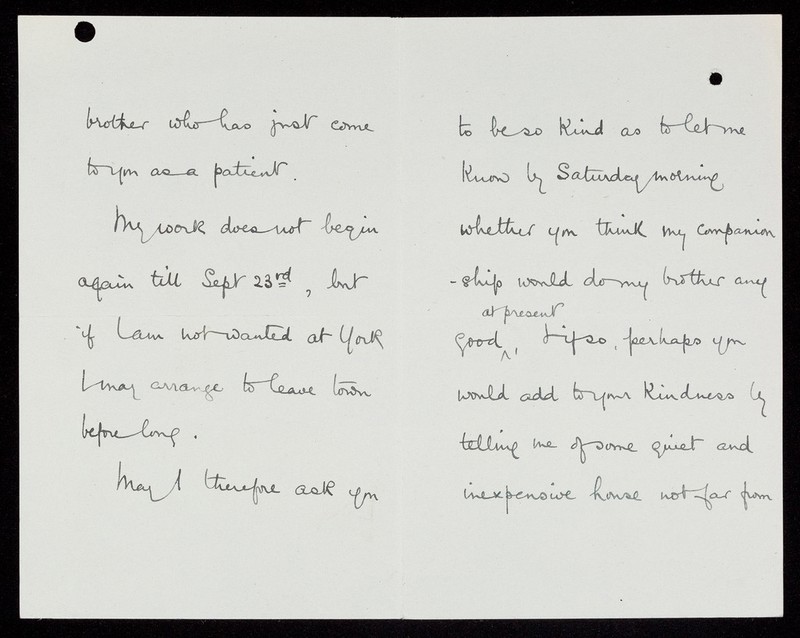 brother who has just come
to you as a patient.
My work does not begin
again till Sept 23rd, but
if I am not wanted at York
I may arrange to leave town
before long.
May I therefore ask you
to be so kind as to let me
know by Saturday morning
whether you think my companion
-ship would do my brother any
at present
good, & if so, perhaps you
would add to your kindness by
telling me of some quiet and
inexpensive house not far from